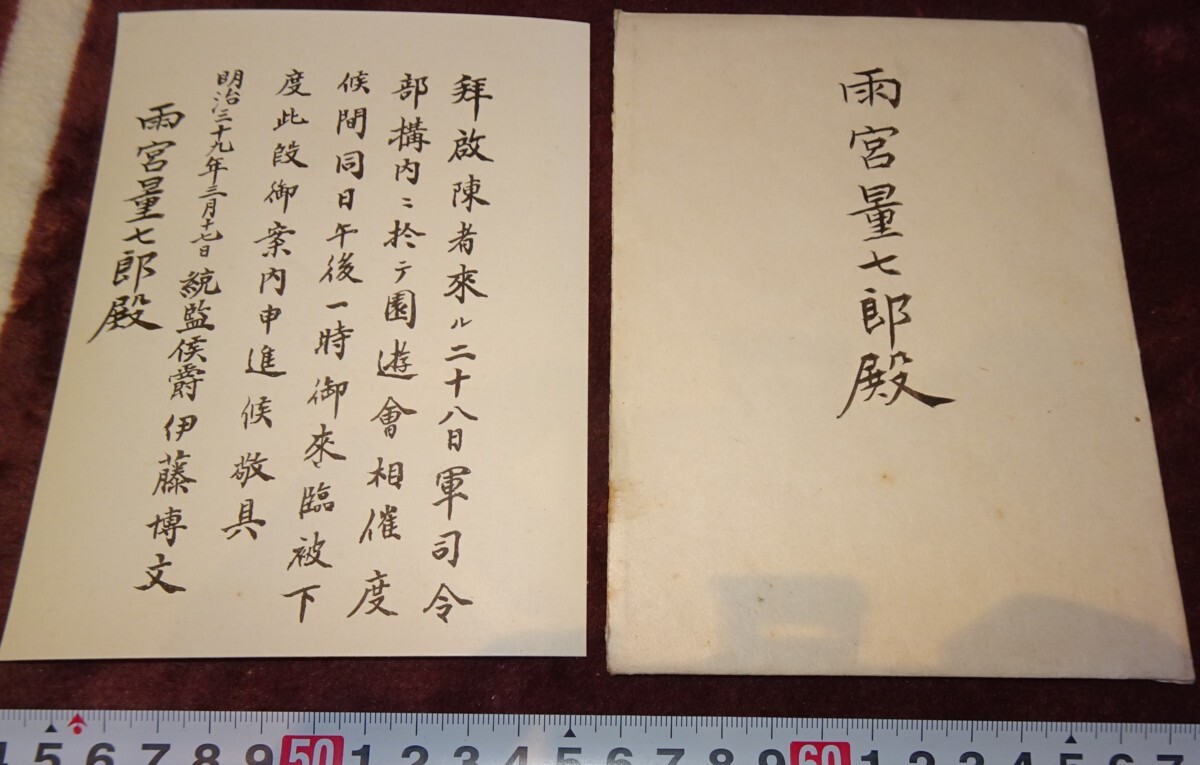 拜啟陳者來ル二十八日軍司令
部構内ニ於テ園遊會相催度
候間同日午後一時御來臨被下
度此段御案内申進候敬具
明治三十九年三月十七日
統監侯爵伊藤博文
雨宮量七郎殿
雨宮量七郎殿
4 5 6 7 8 9 50 1 2 3 4 5 6 7 8 9 60 1 2 3 4 5 6 7